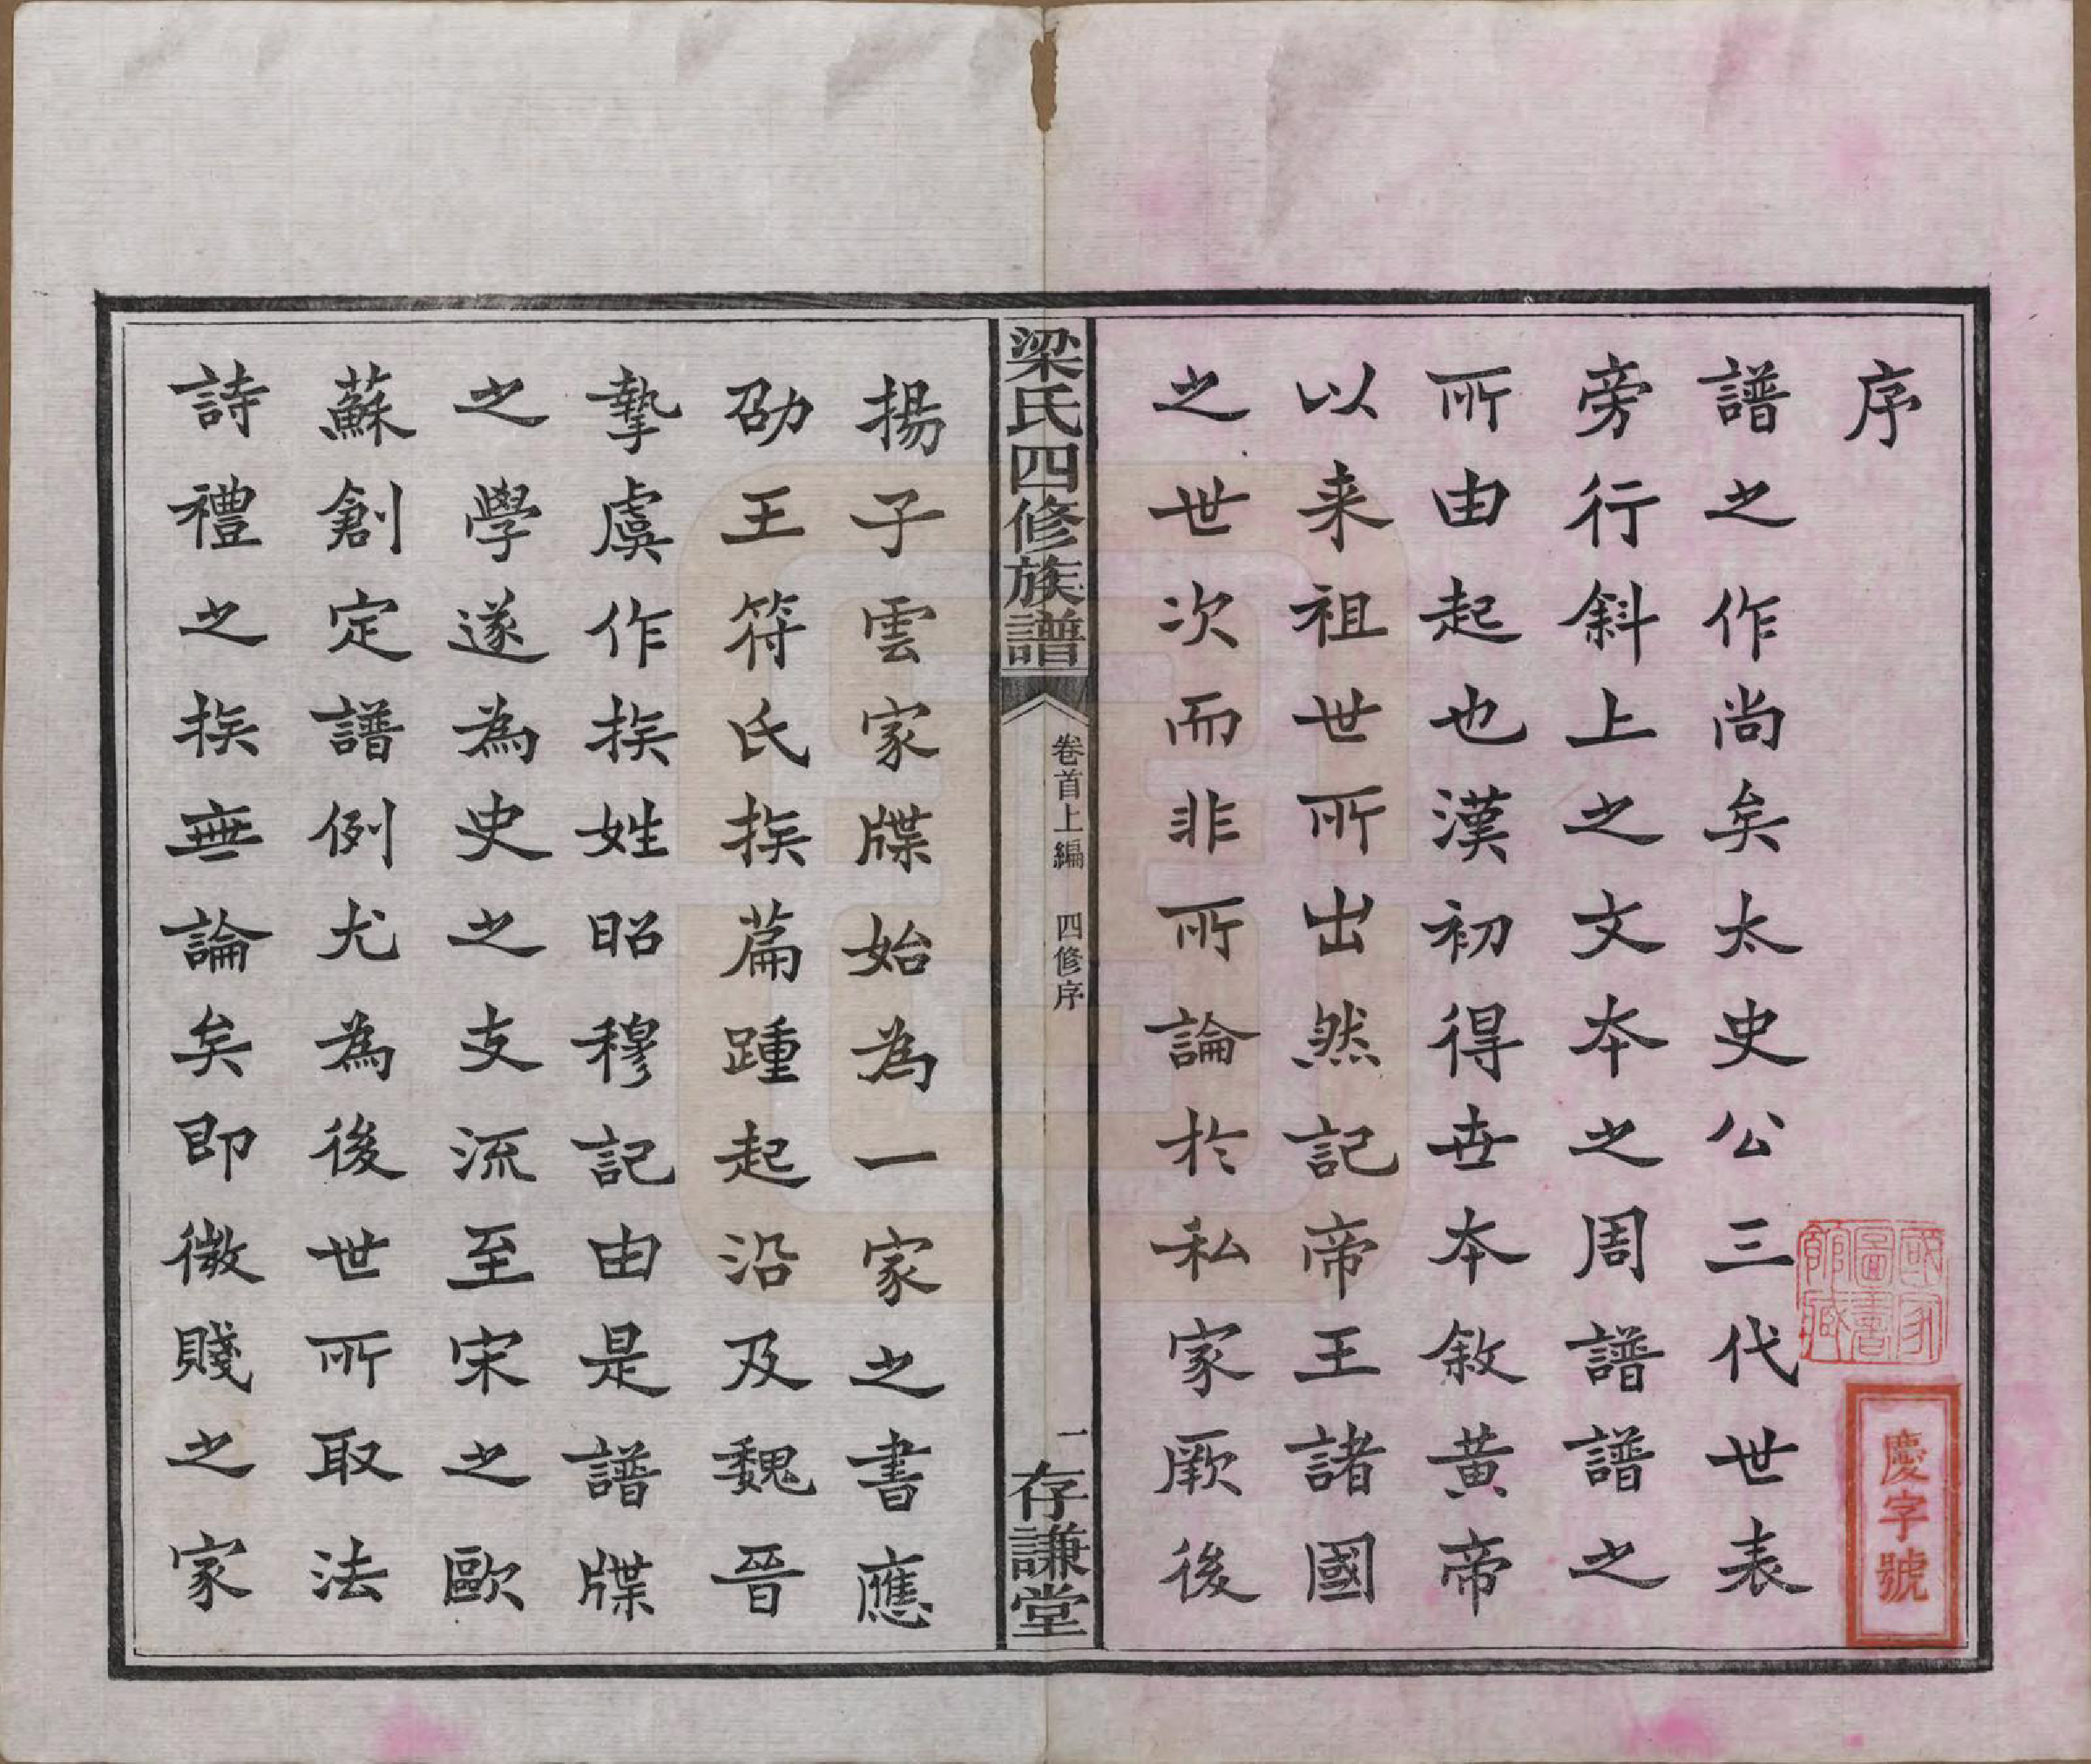 序
譜之作尚矣太史公三代世表
旁行斜上之文本之周譜譜之
所由起也漢初得世本敘黃帝
以来祖世所出然記帝王諸國
之世次而非所論於私家厥後
國家圖書館藏
慶字號
梁氏四修族譜
卷首上編 四修序
一
存謙堂
揚子雲家牒始為一家之書應
劭王符氏族篇踵起沿及魏晉
摯虞作族姓昭穆記由是譜牒
之學遂為史之支流至宋之歐
蘇創定譜例尤為後世所取法
詩禮之族無論矣即微賤之家